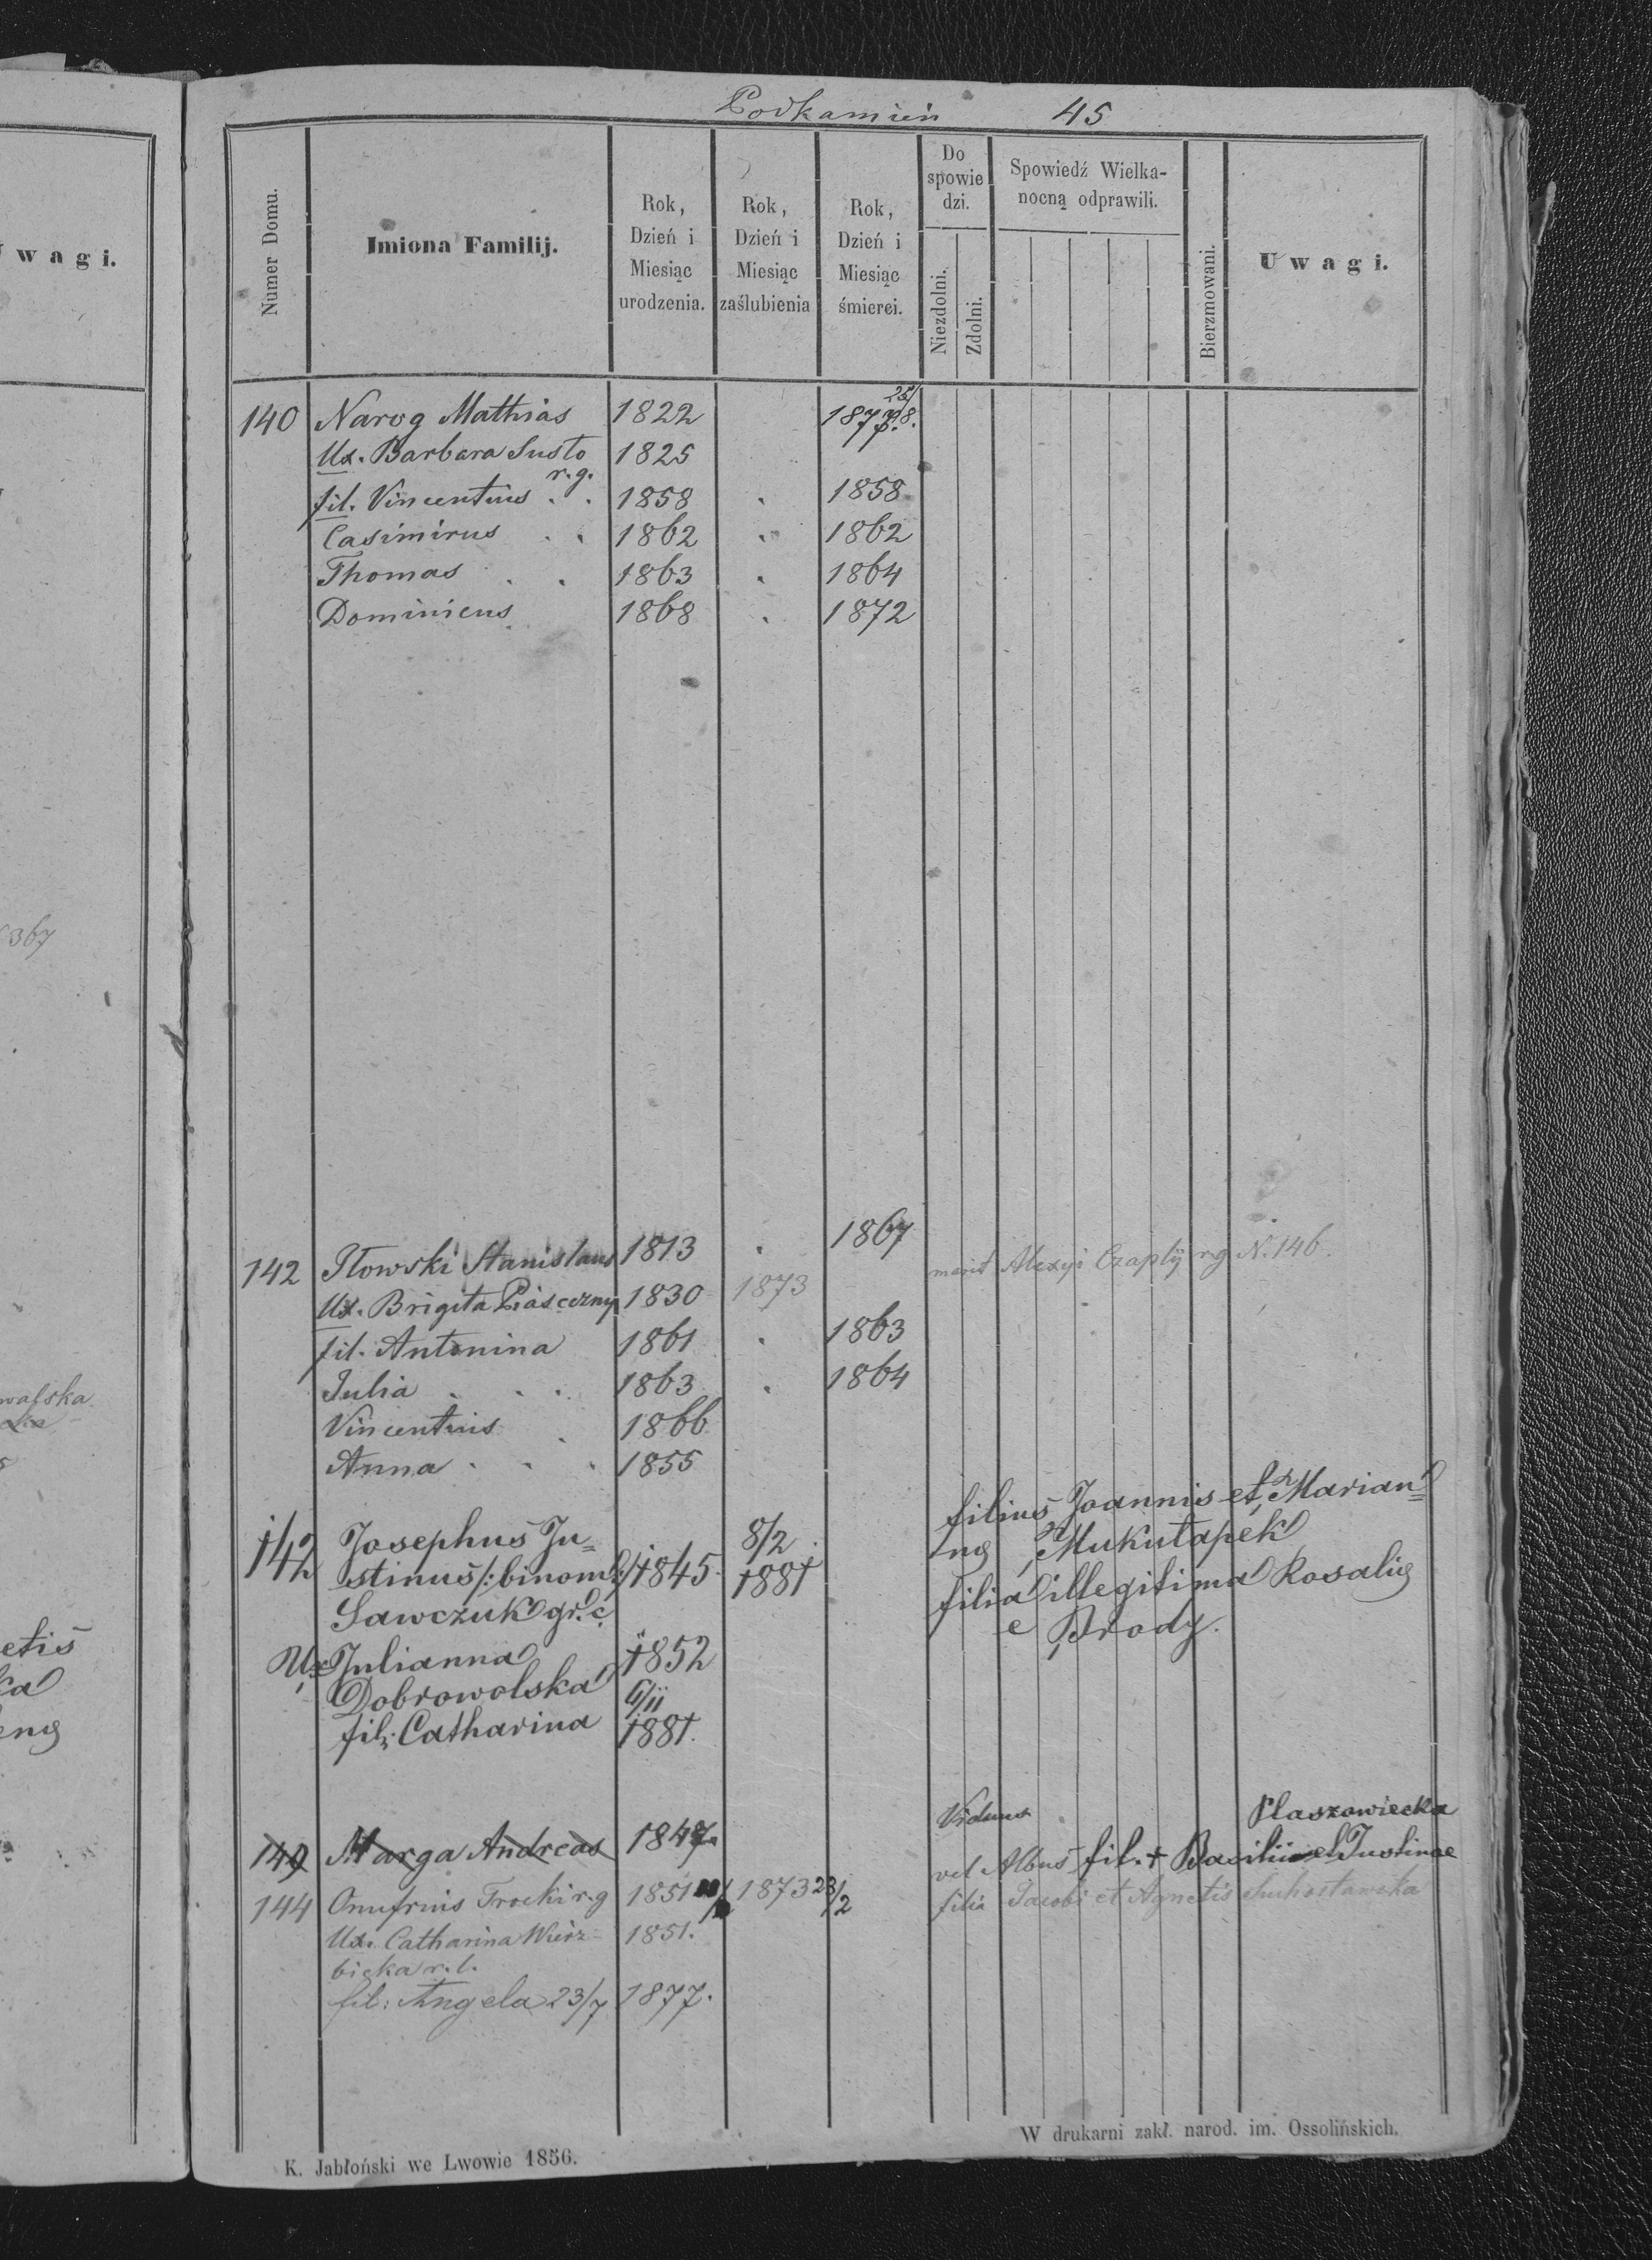 Podkamień 45
Numer Domu.
Imiona Familij.
Rok, Dzień i Miesiąc urodzenia.
Rok, Dzień i Miesiąc zaślubienia
Rok, Dzień i Miesiąc śmierci.
Do spowie dzi.
Niezdolni.
Zdolni.
Spowiedź Wielka-
nocną odprawili.
Bierzmowani.
Uwagi.
wagi.
140 Narog Mathias 1822 187 25/8.
Ux. Barbara Susto 1825
r.g.
fil. Vincentius . . 1858 . 1858
Casimirus . . 1862 . 1862
Thomas . . 1863 . 1864
Dominicus 1868 . 1872
367
142 Iłowski Stanislaus 1813 . 1867
Ux. Brigita Piasceczny 1830 1873 marit Alexyi Czaplij rg N. 146.
fil. Antonina 1861 . 1863
Julia . . . 1863 . 1864
Vincentius . 1866
Anna . . . 1855
walska
142 Josephus Ju= 8/2 filius Joannis et Marian=
stinus /: binom :/ 1845. 1881 nę Mukułapek
Sawczuk gr. c. filia illegitima Rosalię
e Brody.
Ux Julianna 1852
Dobrowolska 6/11
fil. Catharina 1881.
etis
ka
enę
Viduus Płaszowiecka
149 Marga Andreas 1847. vel Albus fil. + Basilii et Justinae
144 Onufrius Trocki r.g 1851 1873 23/2 filia Jacobi et Agnetis Suchostawska
Ux. Catharina Wierz= 1851.
bicka r.l.
fil: Angela 23/7 1877.
K. Jabłoński we Lwowie 1856.
W drukarni zakł. narod. im. Ossolińskich.